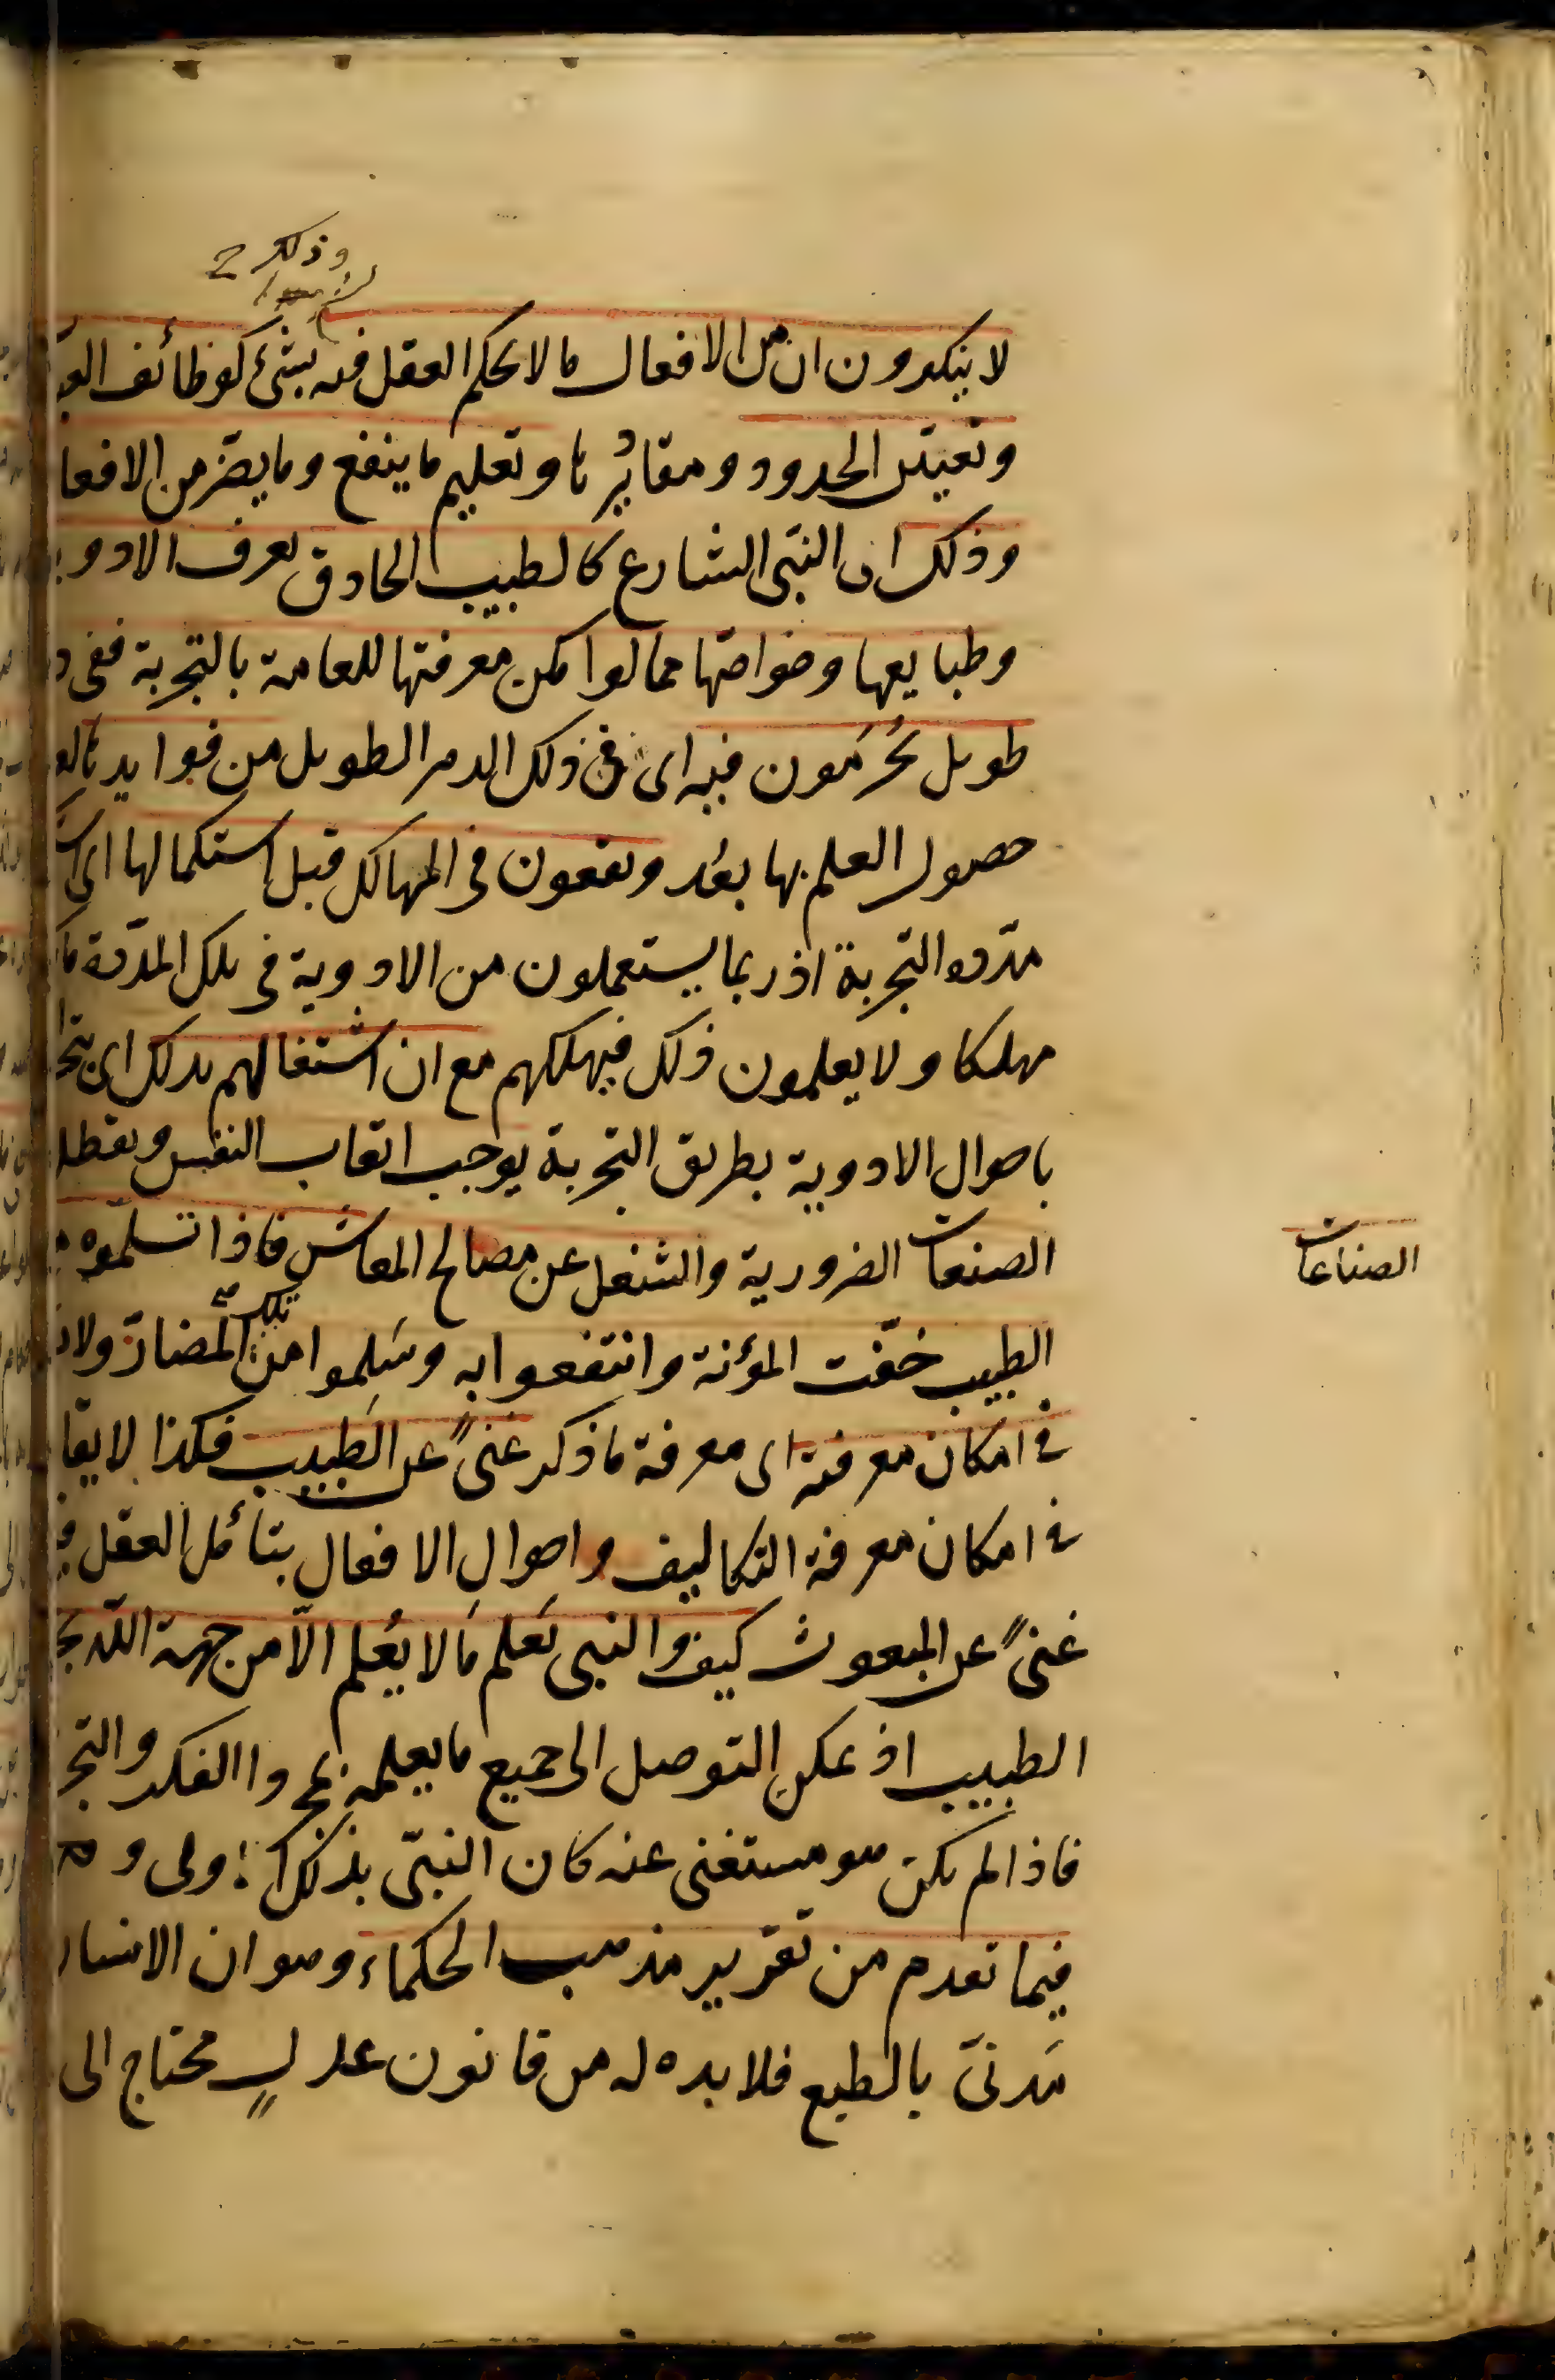 وذلك
لا ينكرون ان من الافعال ما لا يحكم العقل فيه بشئ كوظائف
وتعيين الحدود ومقاديرها وتعليم ما ينفع وما يضر من الافعا
وذلك ان النبى الشارع كالطبيب الحاذق يعرف الادوية
وطبايعها وخواصها مما لو امكن معرفتها للعامة بالتجربة ففى
طويل يُحرَمون فيه اى فى ذلك الدهر الطويل من فوايدها
حصول العلم بها بعد ويقعون فى المهالك قبل استكمالها اى
مدة التجربة اذ ربما يستعملون من الادوية فى تلك المدة ما
مهلكا ولا يعلمون ذلك فيهلكهم مع ان اشتغالهم بذلك اى
باحوال الادوية بطريق التجربة يوجب اتعاب النفس وتعطل
الصنعات الضرورية والشغل عن مصالح المعاش فاذا تسلموه
الصناعات
الطبيب خفّت المؤنة وانتفعوا به وسَلِموا من تلك المضارّ ولا
فى امكان معرفته اى معرفة ما ذكر غنىً عن الطبيب فكذا لا يقا
فى امكان معرفة التكاليف واحوال الافعال بتأمل العقل
غنىً عن المبعوث كيف والنبى يَعلم ما لا يُعلم الّا من جهة الله
الطبيب اذ يمكن التوصل الى جميع ما يعلمه بمجرد الفكر والتجر
فاذا لم يكن هو مستغنى عنه كان النبىّ بذلك اولى و
فيما تقدم من تقرير مذهب الحكماء وهو ان الانسا
مَدنىّ بالطبع فلا بد له من قانون عدلٍ محتاج الى